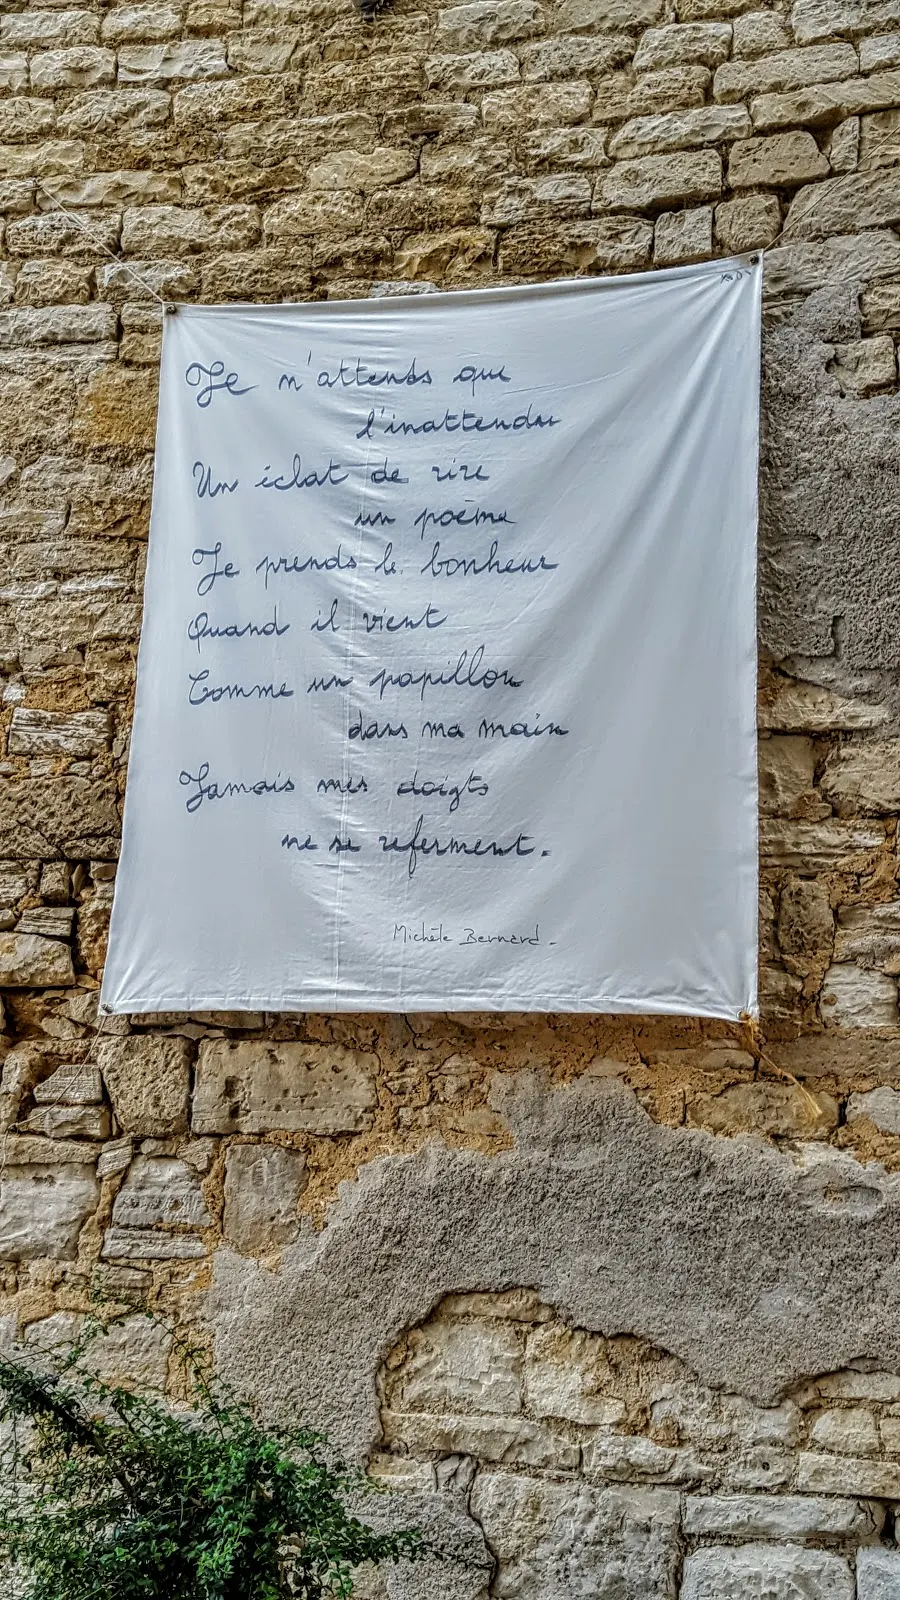 Je n'attends que
l'inattendu
Un éclat de rire
un poème
Je prends le bonheur
Quand il vient
Comme un papillon
dans ma main
Jamais mes doigts
ne se referment.
Michèle Bernard.